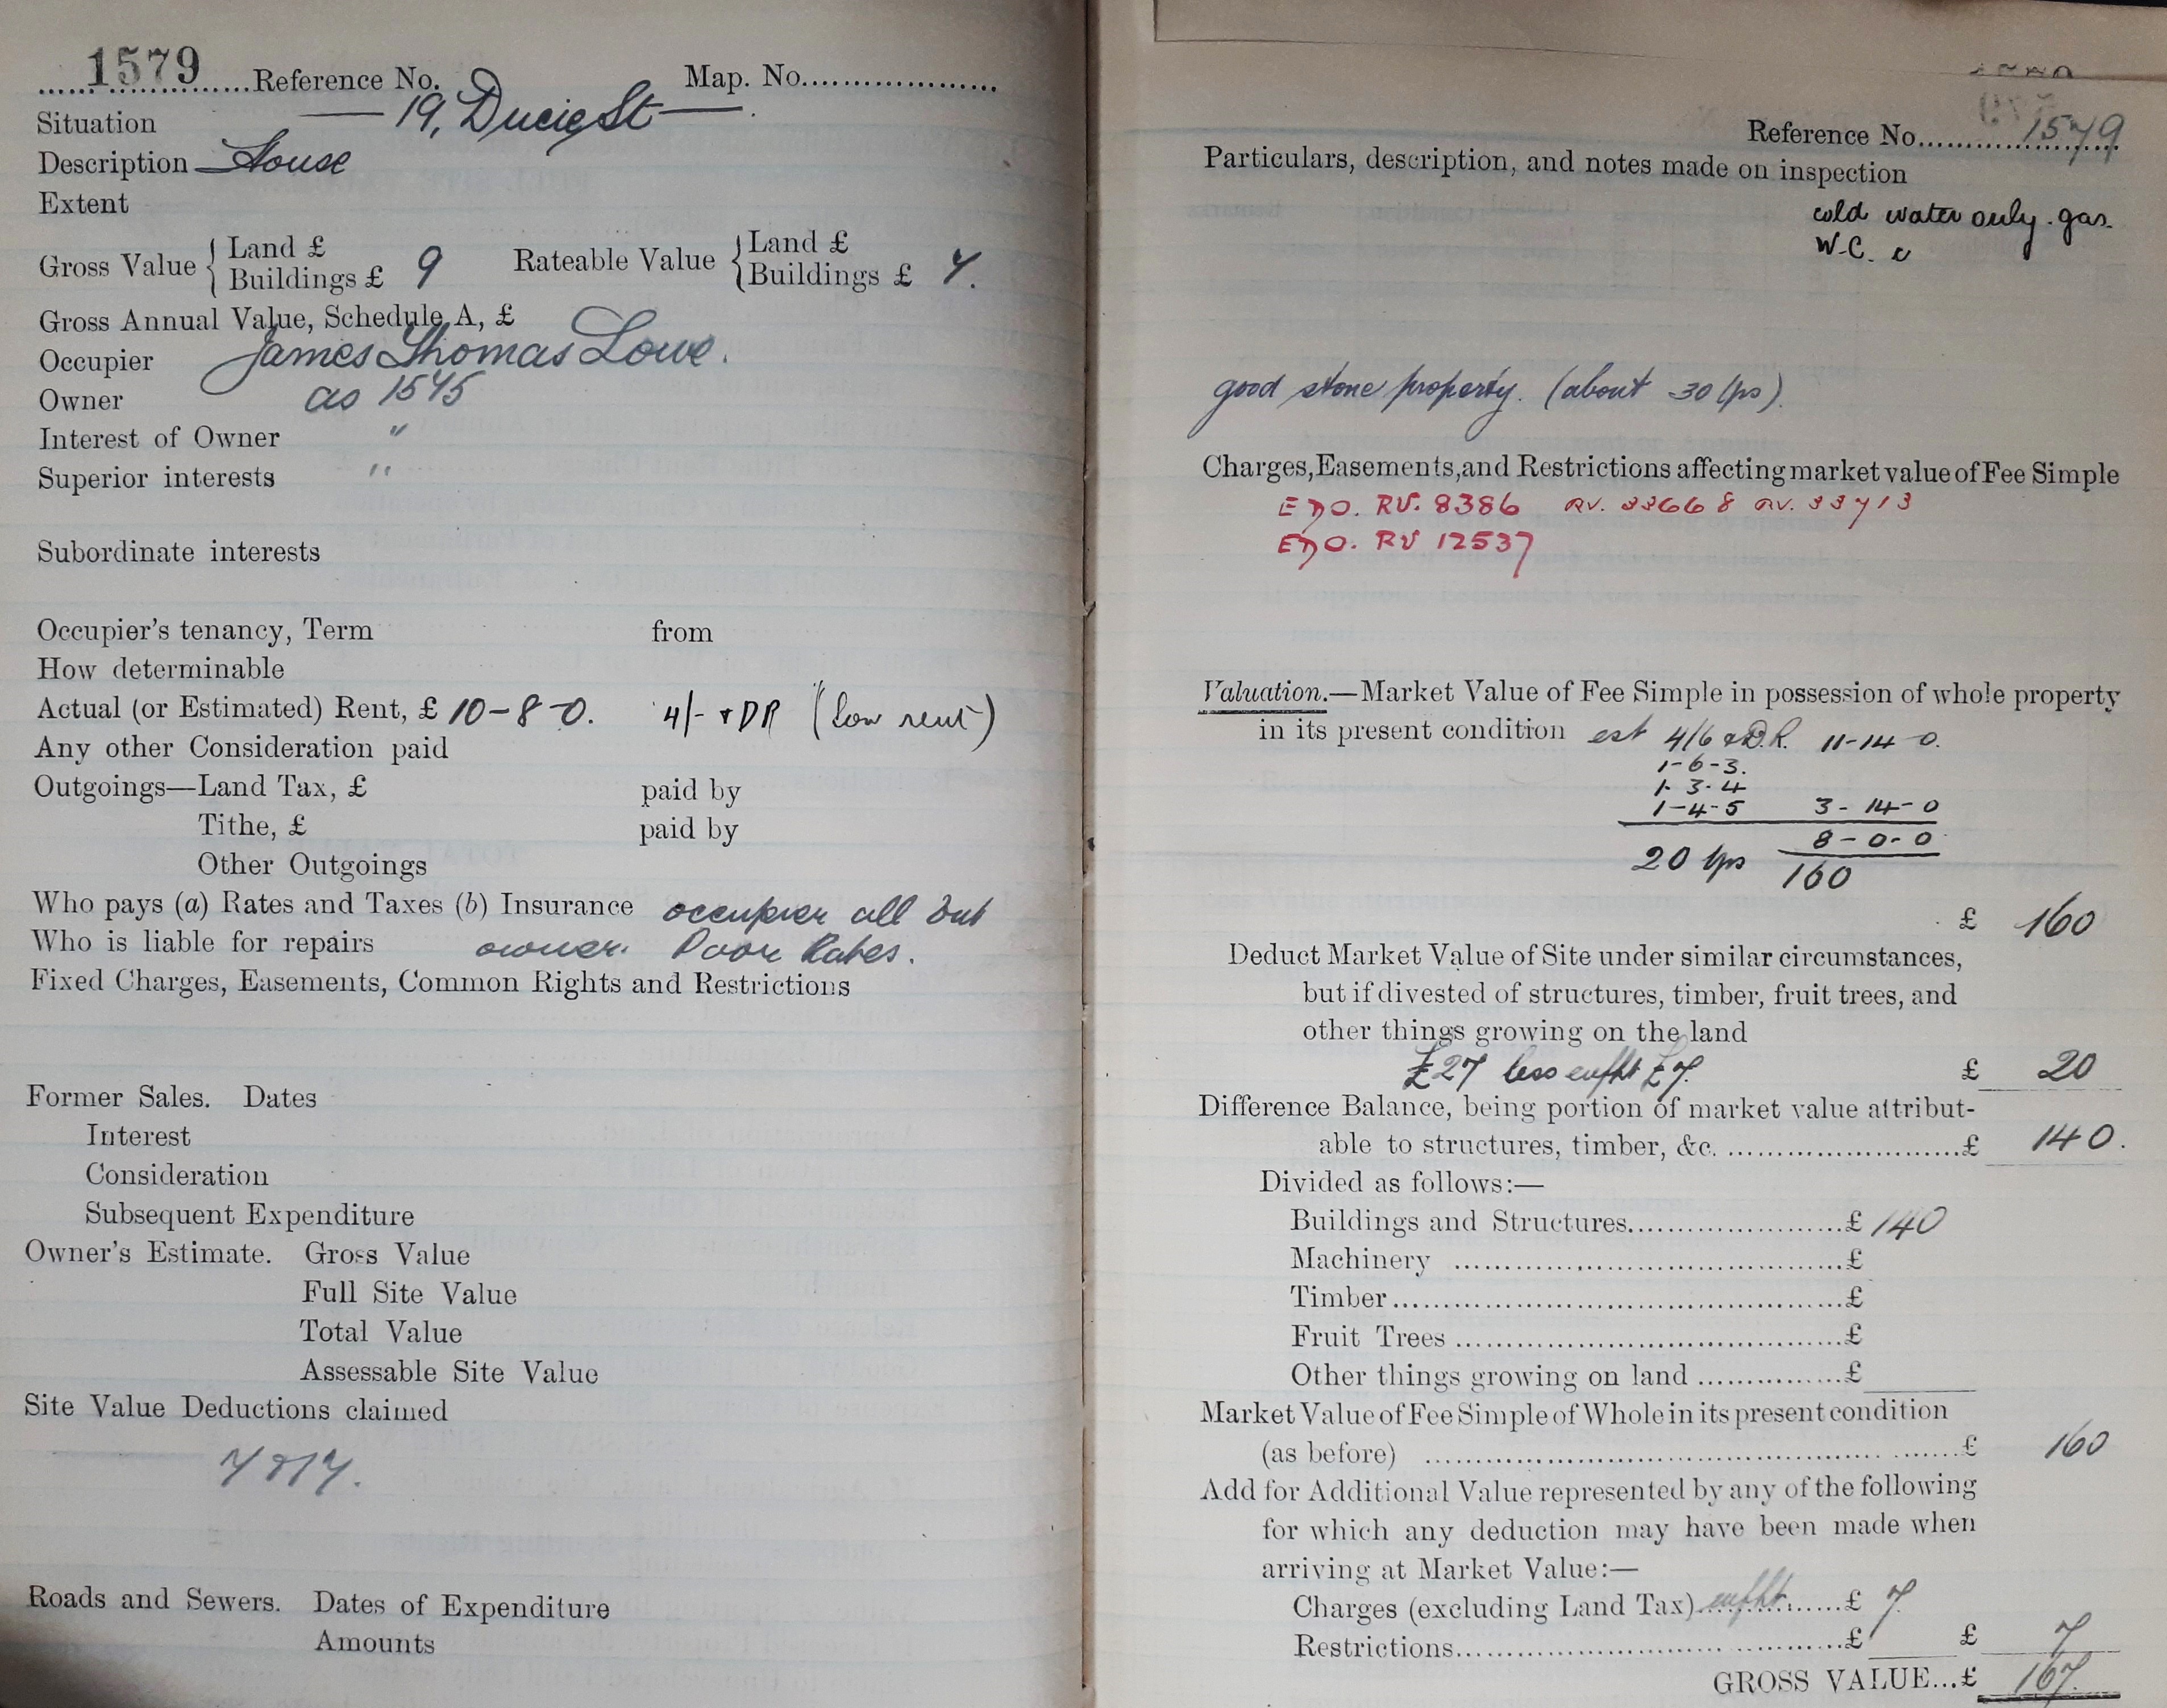 1579 Reference No. Map. No.
Situation — 19, Ducie St —
Description House
Extent
Gross Value { Land £ Rateable Value { Land £
Buildings £ 9 Buildings £ 7.
Gross Annual Value, Schedule A, £
Occupier James Thomas Lowe.
Owner as 1575
Interest of Owner "
Superior interests "
Subordinate interests
Occupier's tenancy, Term from
How determinable
Actual (or Estimated) Rent, £ 10-8-0. 4/- + DR (low rent)
Any other Consideration paid
Outgoings—Land Tax, £ paid by
Tithe, £ paid by
Other Outgoings
Who pays (a) Rates and Taxes (b) Insurance occupier all but
Who is liable for repairs owner. Poor Rates.
Fixed Charges, Easements, Common Rights and Restrictions
Former Sales. Dates
Interest
Consideration
Subsequent Expenditure
Owner's Estimate. Gross Value
Full Site Value
Total Value
Assessable Site Value
Site Value Deductions claimed
Roads and Sewers. Dates of Expenditure
Amounts
Reference No. 1579
Particulars, description, and notes made on inspection
cold water only. gas.
W.C. c
good stone property. (about 30 yps).
Charges, Easements, and Restrictions affecting market value of Fee Simple
EDO. RV. 8386 RV. 33668 RV. 33713
EDO. RV 12537
Valuation.—Market Value of Fee Simple in possession of whole property
in its present condition est 4/6 & D.R. 11-14-0.
1-6-3.
1-3-4
1-4-5 3-14-0
8-0-0
20 yps 160
£ 160
Deduct Market Value of Site under similar circumstances,
but if divested of structures, timber, fruit trees, and
other things growing on the land
£27 less £7. £ 20
Difference Balance, being portion of market value attribut-
able to structures, timber, &c. £ 140.
Divided as follows:—
Buildings and Structures £ 140
Machinery £
Timber £
Fruit Trees £
Other things growing on land £
Market Value of Fee Simple of Whole in its present condition
(as before) £ 160
Add for Additional Value represented by any of the following
for which any deduction may have been made when
arriving at Market Value:—
Charges (excluding Land Tax) £ 7
Restrictions £ £ 7
GROSS VALUE...£ 167.